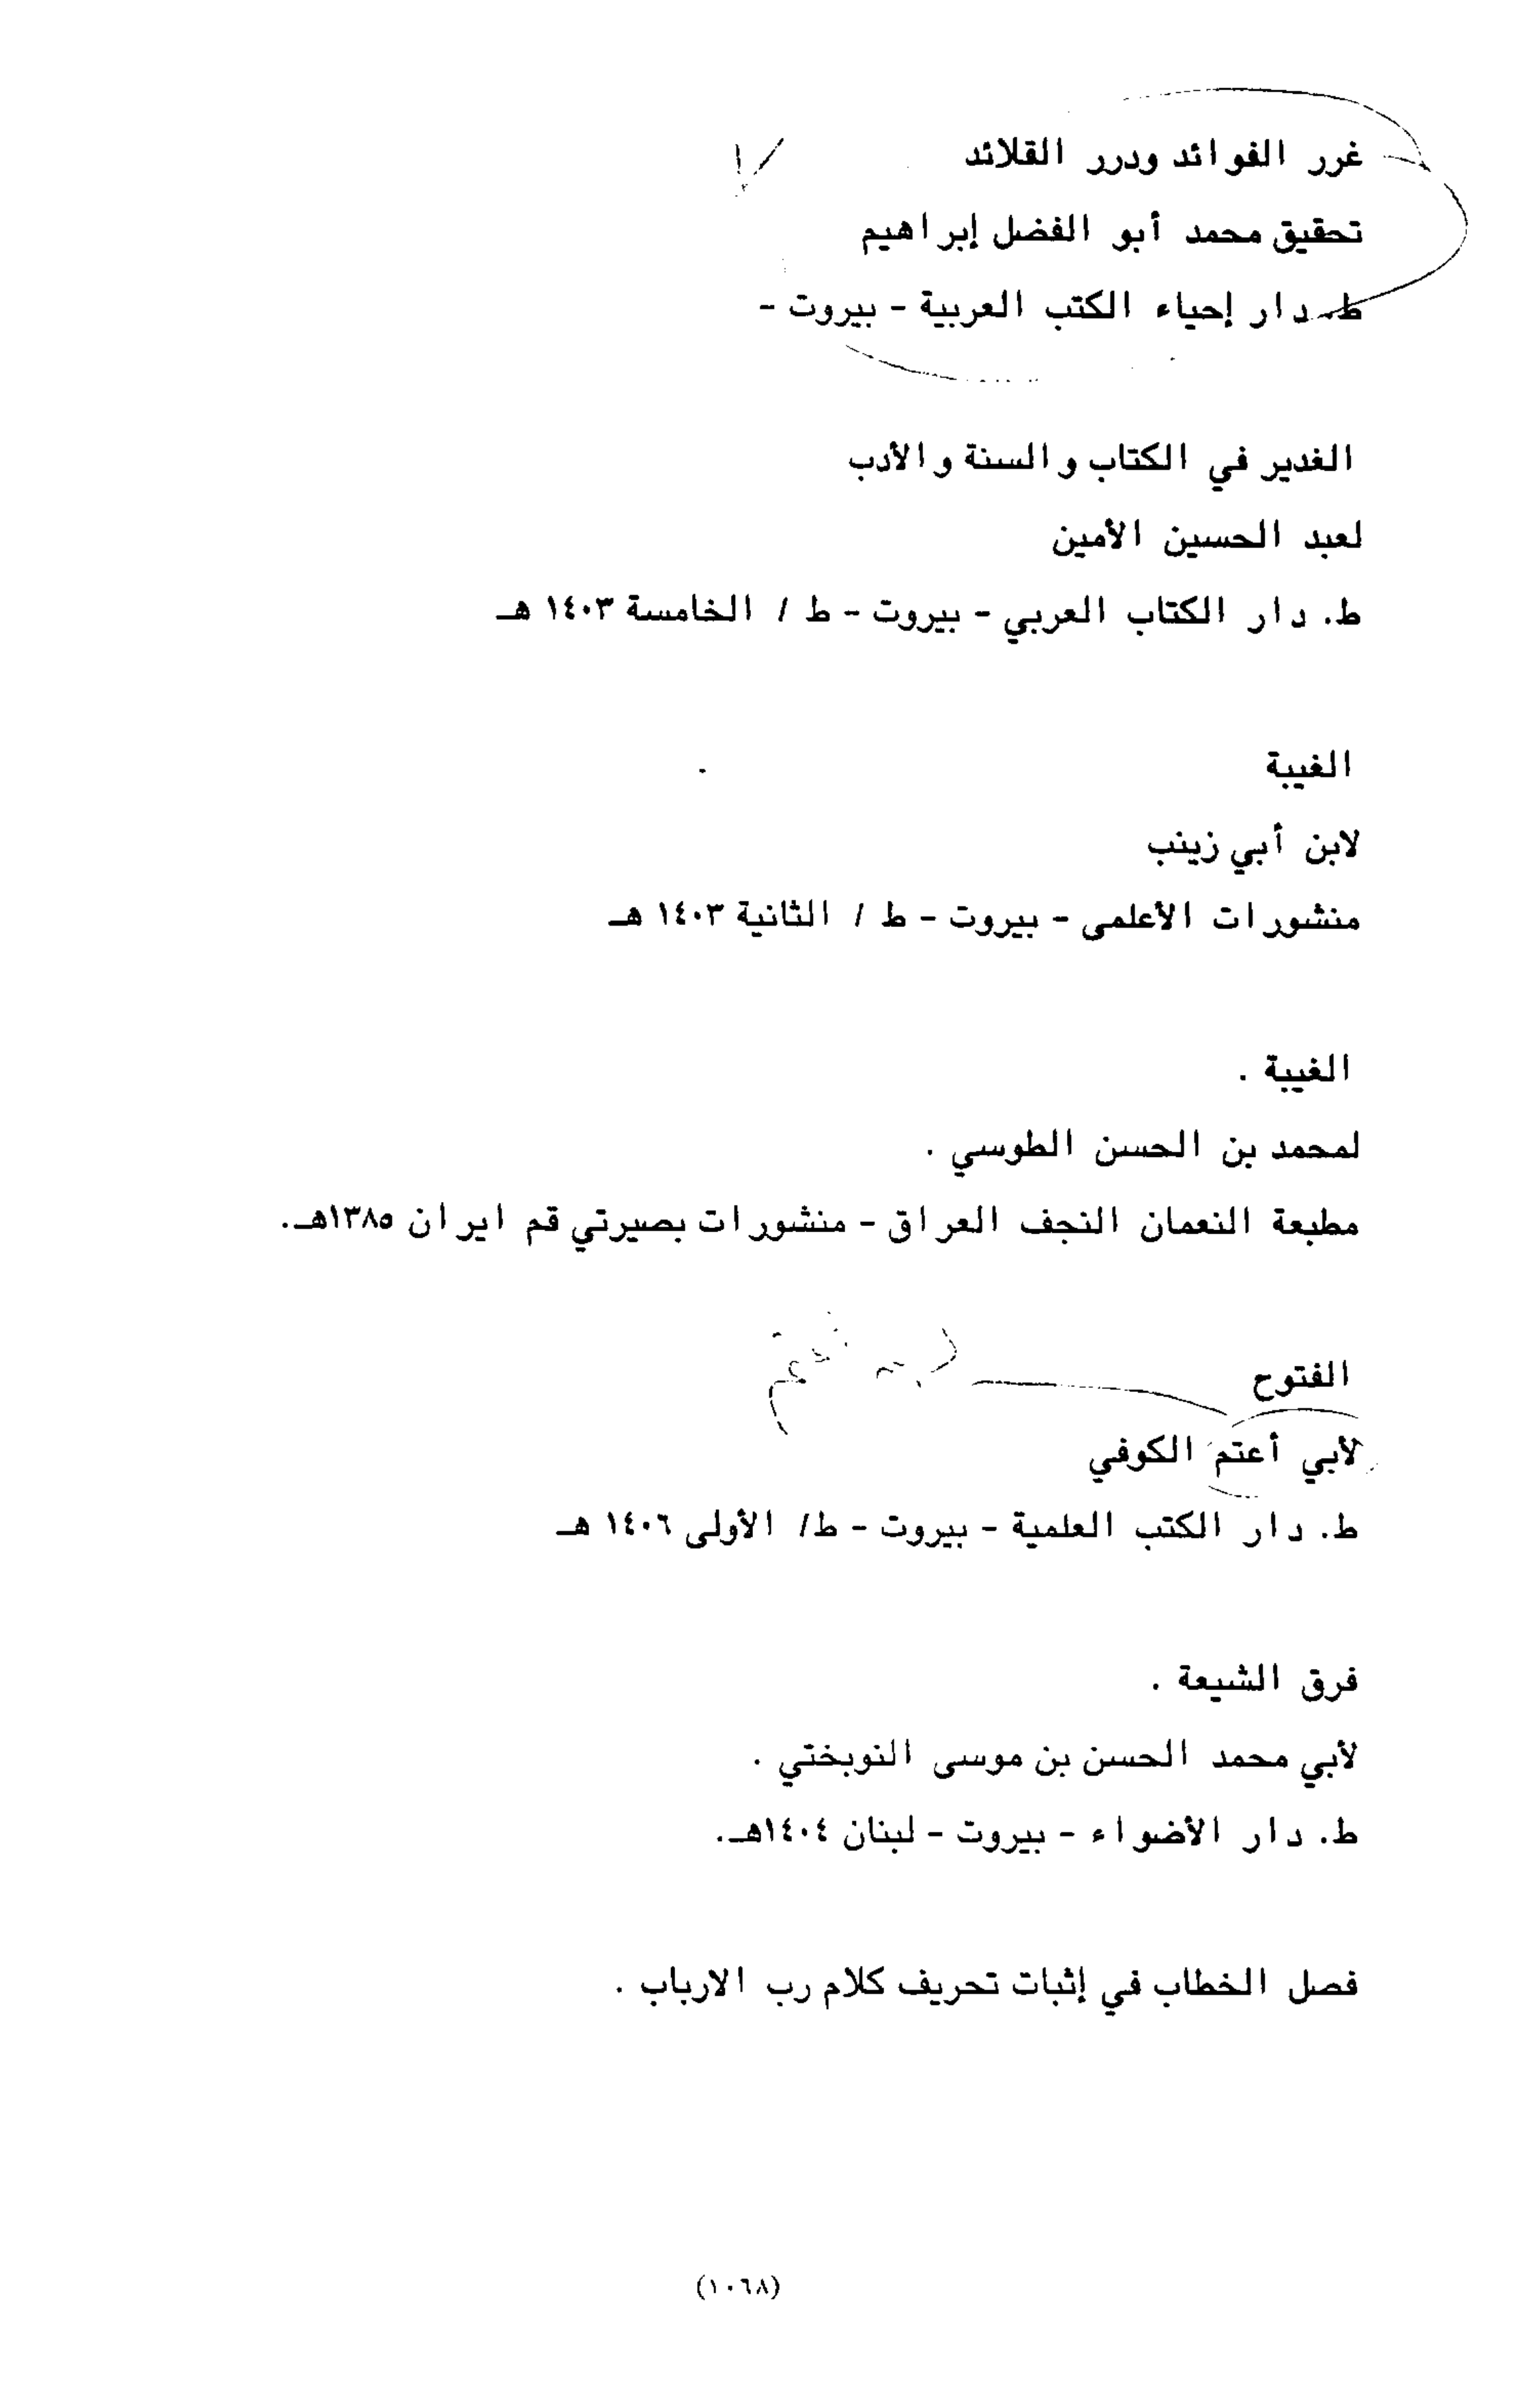 غرر الفوائد ودرر القلائد
تحقيق محمد أبو الفضل إبراهيم
ط. دار إحياء الكتب العربية - بيروت -
الغدير في الكتاب والسنة والأدب
لعبد الحسين الأمين
ط. دار الكتاب العربي - بيروت - ط / الخامسة ١٤٠٣ هـ
الغيبة
لابن أبي زينب
منشورات الأعلمى - بيروت - ط / الثانية ١٤٠٣ هـ
الغيبة .
لمحمد بن الحسن الطوسي .
مطبعة النعمان النجف العراق - منشورات بصيرتي قم ايران ١٣٨٥هـ.
الفتوح
لأبي أعتم الكوفي
ط. دار الكتب العلمية - بيروت - ط/ الأولى ١٤٠٦ هـ
فرق الشيعة .
لأبي محمد الحسن بن موسى النوبختي .
ط. دار الأضواء - بيروت - لبنان ١٤٠٤هـ.
فصل الخطاب في إثبات تحريف كلام رب الارباب .
(١٠٦٨)